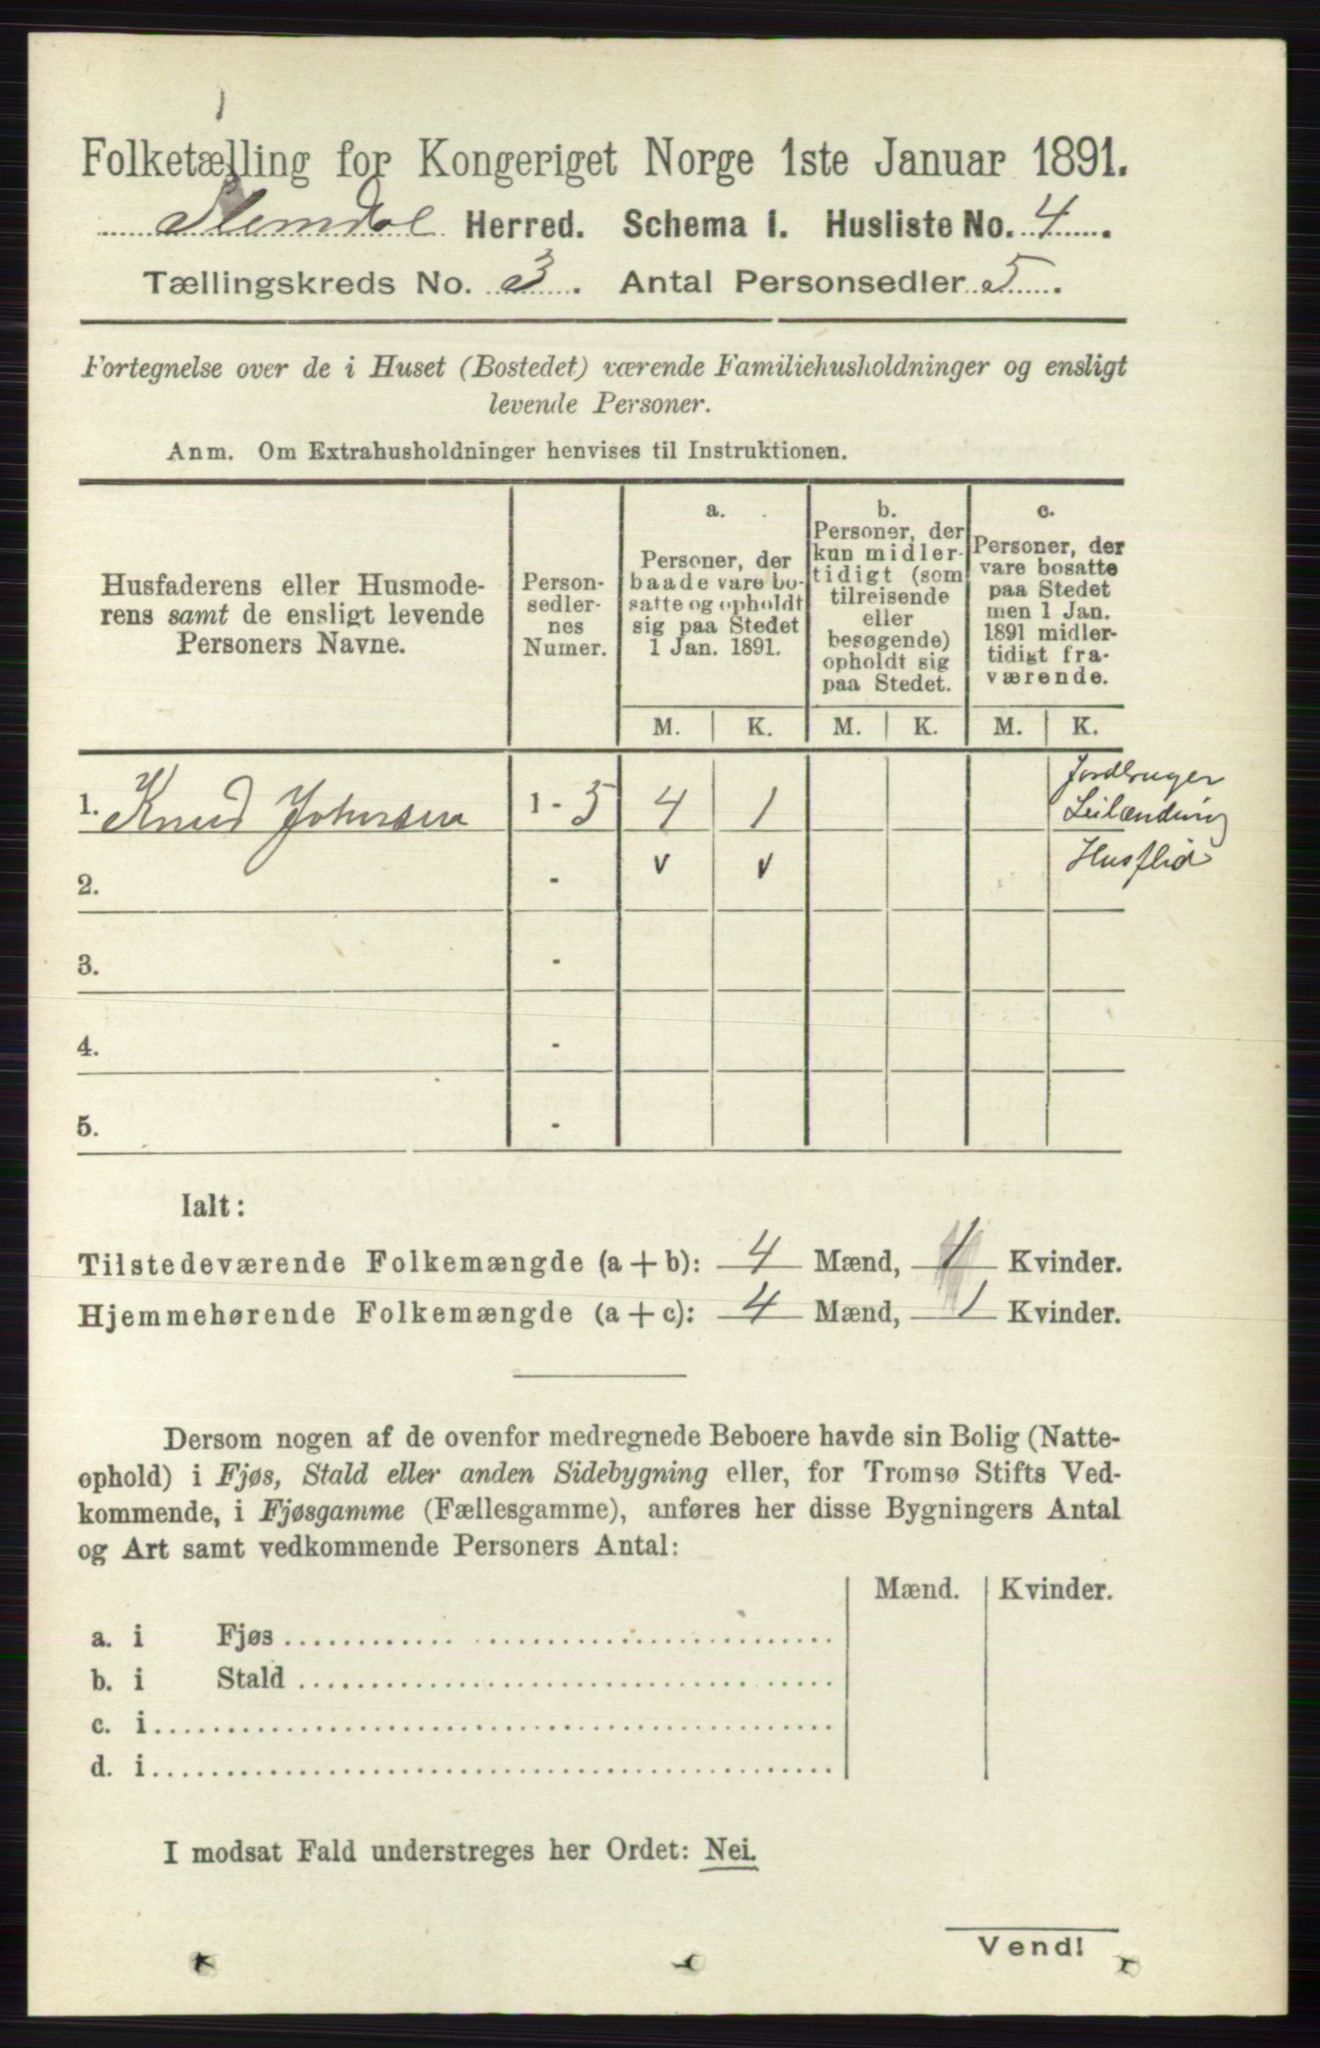 Folketælling for Kongeriget Norge 1ste Januar 1891.
Slemdal Herred. Schema I. Husliste No. 4.
Tællingskreds No. 3. Antal Personsedler 5.
Fortegnelse over de i Huset (Bostedet) værende Familiehusholdninger og ensligt
levende Personer.
Anm. Om Extrahusholdninger henvises til Instruktionen.
Husfaderens eller Husmode-
rens samt de ensligt levende
Personers Navne.
Person-
sedler-
nes
Numer.
a.
Personer, der
baade vare bo-
satte og opholdt
sig paa Stedet
1 Jan. 1891.
b.
Personer, der
kun midler-
tidigt (som
tilreisende
eller
besøgende)
opholdt sig
paa Stedet.
c.
Personer, der
vare bosatte
paa Stedet
men 1 Jan.
1891 midler-
tidigt fra-
værende.
M. K. M. K. M. K.
Jordbruger
1. Knud Johnsen 1 - 5 4 1 Leilænding
Husflid
2. - v v
3. -
4. -
5. -
Ialt:
Tilstedeværende Folkemængde (a + b): 4 Mænd, 1 Kvinder.
Hjemmehørende Folkemængde (a + c): 4 Mænd, 1 Kvinder.
Dersom nogen af de ovenfor medregnede Beboere havde sin Bolig (Natte-
ophold) i Fjøs, Stald eller anden Sidebygning eller, for Tromsø Stifts Ved-
kommende, i Fjøsgamme (Fællesgamme), anføres her disse Bygningers Antal
og Art samt vedkommende Personers Antal:
Mænd. Kvinder.
a. i Fjøs
b. i Stald
c. i
d. i
I modsat Fald understreges her Ordet: Nei.
Vend!